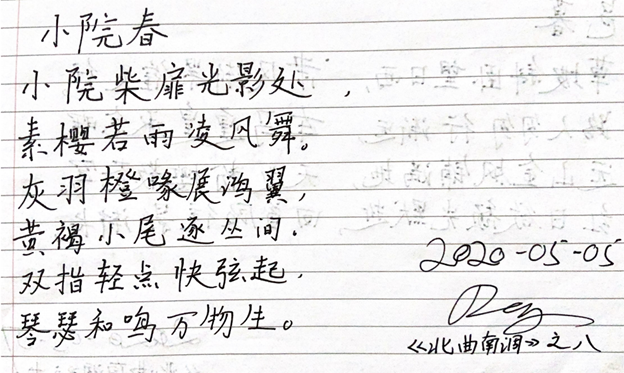 小院春
小院柴扉光影处，
素樱若雨凌风舞。
灰羽橙喙展鸿翼，
黄褐小尾逐丛间.
双指轻点快弦起.
琴瑟和鸣万物生。
2020-05-05
《北曲南润》之八